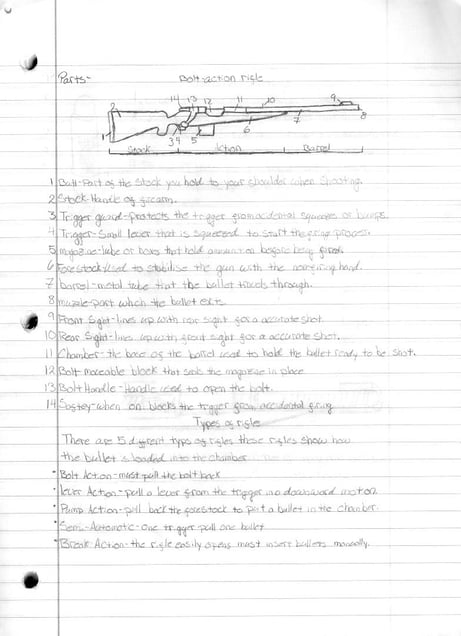 Parts-
Bolt-action rifle
14 13 12 11 10 9
2
1
3 4 5 6 7 8
Stock Action Barrel
1 Butt-Part of the stock you hold to your shoulder when shooting.
2 Stock-Handle of firearm.
3 Trigger guard-protects the trigger from accidental squeezes or bumps.
4 Trigger-Small lever that is squeezed to start the firing process.
5 magazine-tube or boxes that hold ammunition before being fired.
6 Forestock-Used to stabilise the gun with the non-firing hand.
7 barrel-metal tube that the bullet travels through.
8 muzzle-part which the bullet exits.
9 Front Sight-lines up with rear sight for a accurate shot.
10 Rear Sight-lines up with front sight for a accurate shot.
11 Chamber-the base of the barrel used to hold the bullet ready to be shot.
12 Bolt moveable block that seals the magazine in place
13 Bolt Handle-Handle used to open the bolt.
14 Saftey-when on blocks the trigger from accidental firing
Types of rifle
There are 5 different typs of rifles these rifles show how
the bullet is loaded into the chamber
• Bolt Action-must pull the bolt back
• lever Action-pull a lever from the trigger in a downward motion
• Pump Action-pull back the forestock to put a bullet in the chamber.
• Semi-Automatic-One trigger pull one bullet
• Break Action-the rifle easily opens must insert bullets manually.